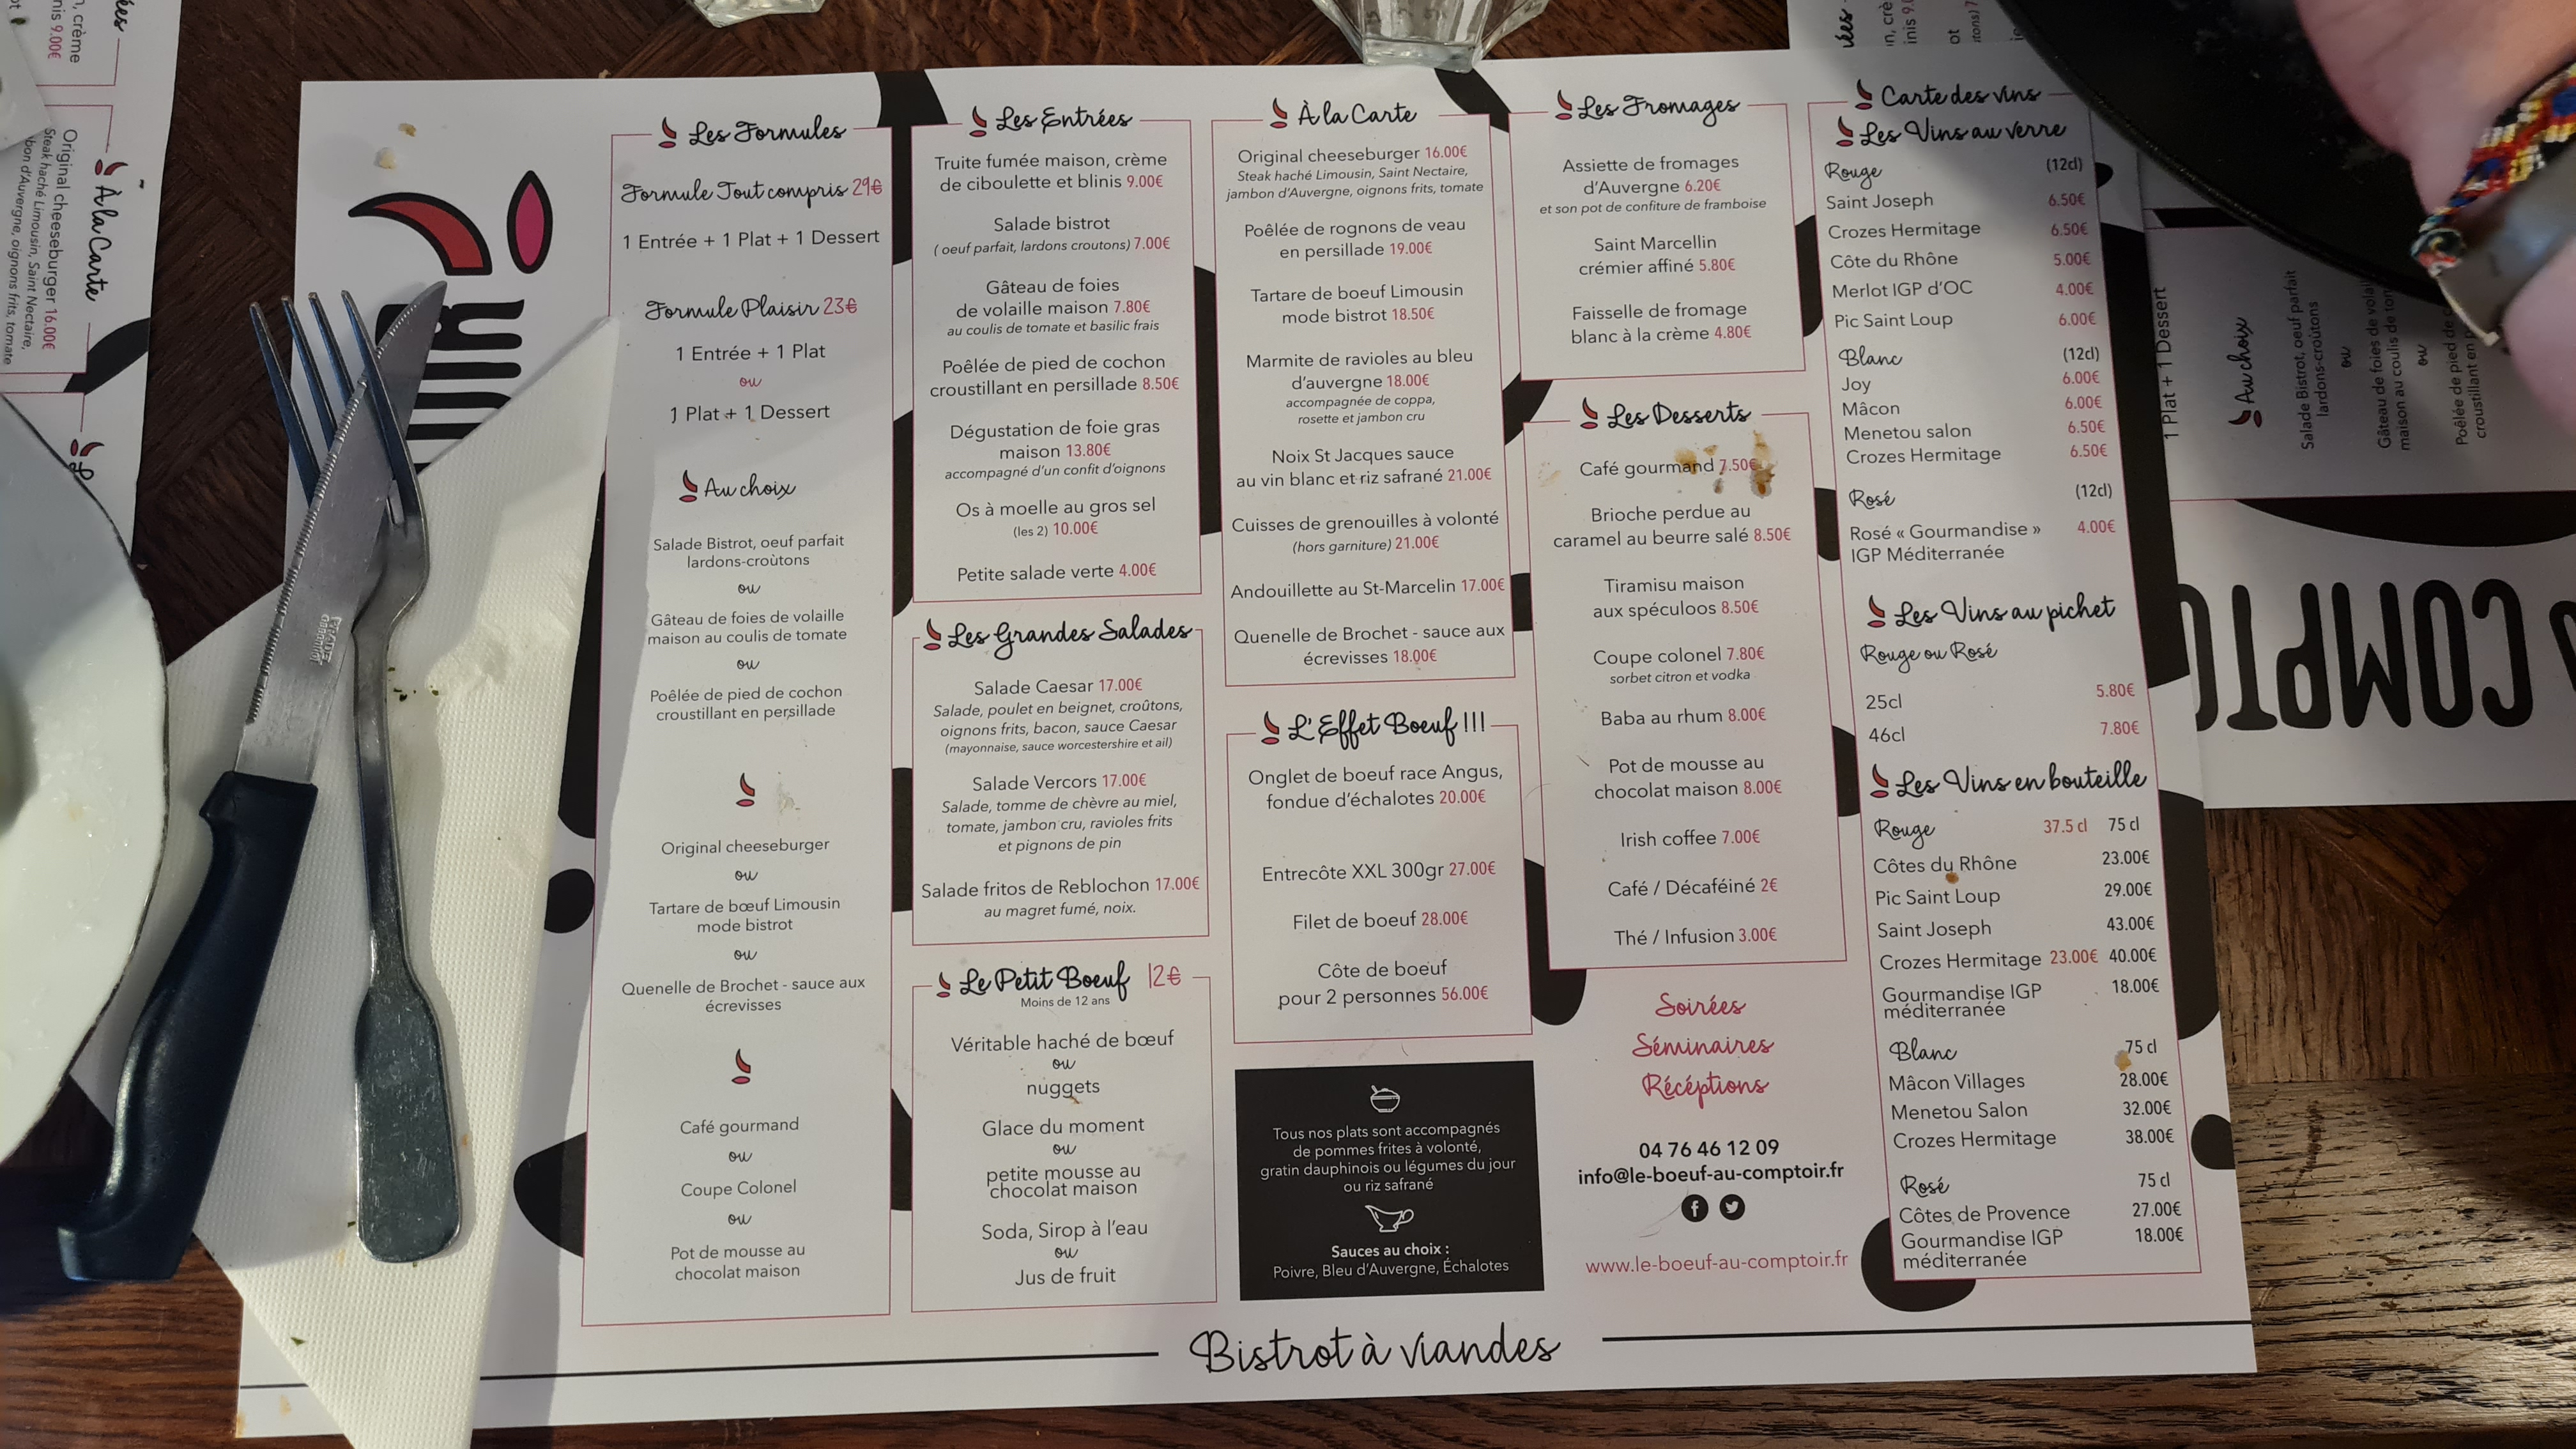 Les Formules
Formule Tout compris 29€
1 Entrée + 1 Plat + 1 Dessert
Formule Plaisir 23€
1 Entrée + 1 Plat
ou
1 Plat + 1 Dessert
Au choix
Salade Bistrot, oeuf parfait
lardons-croùtons
ou
Gâteau de foies de volaille
maison au coulis de tomate
ou
Poêlée de pied de cochon
croustillant en persillade
Original cheeseburger
ou
Tartare de bœuf Limousin
mode bistrot
ou
Quenelle de Brochet - sauce aux
écrevisses
Café gourmand
ou
Coupe Colonel
ou
Pot de mousse au
chocolat maison
Les Entrées
Truite fumée maison, crème
de ciboulette et blinis 9.00€
Salade bistrot
( oeuf parfait, lardons croutons) 7.00€
Gâteau de foies
de volaille maison 7.80€
au coulis de tomate et basilic frais
Poêlée de pied de cochon
croustillant en persillade 8.50€
Dégustation de foie gras
maison 13.80€
accompagné d'un confit d'oignons
Os à moelle au gros sel
(les 2) 10.00€
Petite salade verte 4.00€
Les Grandes Salades
Salade Caesar 17.00€
Salade, poulet en beignet, croûtons,
oignons frits, bacon, sauce Caesar
(mayonnaise, sauce worcestershire et ail)
Salade Vercors 17.00€
Salade, tomme de chèvre au miel,
tomate, jambon cru, ravioles frits
et pignons de pin
Salade fritos de Reblochon 17.00€
au magret fumé, noix.
Le Petit Boeuf 12€
Moins de 12 ans
Véritable haché de bœuf
ou
nuggets
Glace du moment
ou
petite mousse au
chocolat maison
Soda, Sirop à l'eau
ou
Jus de fruit
À la Carte
Original cheeseburger 16.00€
Steak haché Limousin, Saint Nectaire,
jambon d'Auvergne, oignons frits, tomate
Poêlée de rognons de veau
en persillade 19.00€
Tartare de boeuf Limousin
mode bistrot 18.50€
Marmite de ravioles au bleu
d'auvergne 18.00€
accompagnée de coppa,
rosette et jambon cru
Noix St Jacques sauce
au vin blanc et riz safrané 21.00€
Cuisses de grenouilles à volonté
(hors garniture) 21.00€
Andouillette au St-Marcelin 17.00€
Quenelle de Brochet - sauce aux
écrevisses 18.00€
L'Effet Boeuf !!!
Onglet de boeuf race Angus,
fondue d'échalotes 20.00€
Entrecôte XXL 300gr 27.00€
Filet de boeuf 28.00€
Côte de boeuf
pour 2 personnes 56.00€
Tous nos plats sont accompagnés
de pommes frites à volonté,
gratin dauphinois ou légumes du jour
ou riz safrané
Sauces au choix :
Poivre, Bleu d'Auvergne, Échalotes
Les Fromages
Assiette de fromages
d'Auvergne 6.20€
et son pot de confiture de framboise
Saint Marcellin
crémier affiné 5.80€
Faisselle de fromage
blanc à la crème 4.80€
Les Desserts
Café gourmand 7.50€
Brioche perdue au
caramel au beurre salé 8.50€
Tiramisu maison
aux spéculoos 8.50€
Coupe colonel 7.80€
sorbet citron et vodka
Baba au rhum 8.00€
Pot de mousse au
chocolat maison 8.00€
Irish coffee 7.00€
Café / Décaféiné 2€
Thé / Infusion 3.00€
Soirées
Séminaires
Récéptions
04 76 46 12 09
info@le-boeuf-au-comptoir.fr
www.le-boeuf-au-comptoir.fr
Carte des vins
Les Vins au verre
Rouge (12cl)
Saint Joseph 6.50€
Crozes Hermitage 6.50€
Côte du Rhône 5.00€
Merlot IGP d'OC 4.00€
Pic Saint Loup 6.00€
Blanc (12cl)
Joy 6.00€
Mâcon 6.00€
Menetou salon 6.50€
Crozes Hermitage 6.50€
Rosé (12cl)
Rosé « Gourmandise » 4.00€
IGP Méditerranée
Les Vins au pichet
Rouge ou Rosé
25cl 5.80€
46cl 7.80€
Les Vins en bouteille
Rouge 37.5 cl 75 cl
Côtes du Rhône 23.00€
Pic Saint Loup 29.00€
Saint Joseph 43.00€
Crozes Hermitage 23.00€ 40.00€
Gourmandise IGP 18.00€
méditerranée
Blanc 75 cl
Mâcon Villages 28.00€
Menetou Salon 32.00€
Crozes Hermitage 38.00€
Rosé 75 cl
Côtes de Provence 27.00€
Gourmandise IGP 18.00€
méditerranée
Bistrot à viandes
crème
9.00€
À la Carte
Original cheeseburger 16.00€
Steak haché Limousin, Saint Nectaire,
d'Auvergne, oignons frits, tomate
1 Plat + 1 Dessert
Au choix
Salade Bistrot, oeuf parfait
lardons-croûtons
ou
Gâteau de foies de
maison au coulis de
ou
Poêlée de pied de
croustillant en